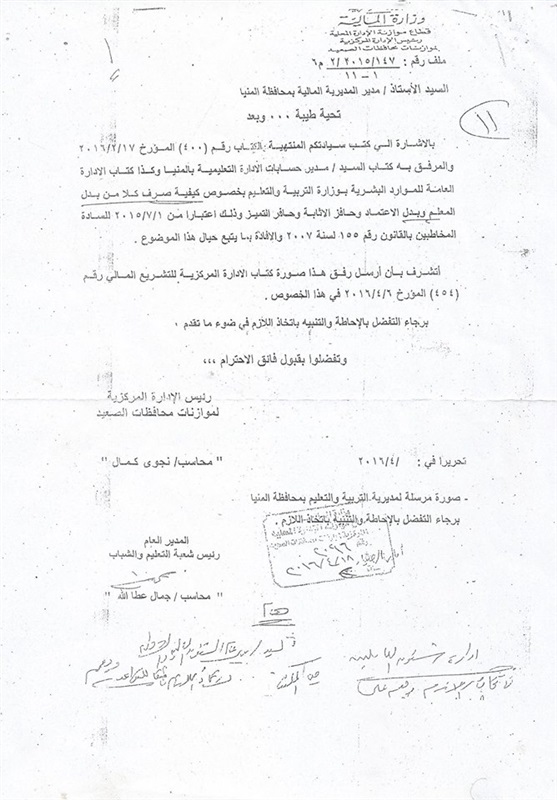 وزارة المالية
قطاع موازنة الإدارة المحلية
رئيس الإدارة المركزية
لموازنات محافظات الصعيد
ملف رقم : ٢٠١٥/١٤٧ /٢ م٦
١ – ١١
السيد الأستاذ / مدير المديرية المالية بمحافظة المنيا
تحية طيبة ٠٠٠ وبعد
١١
بالاشارة الي كتب سيادتكم المنتهية بالكتاب رقم (٤٠٠) المؤرخ ٢٠١٦/٢/١٧
والمرفق به كتاب السيد / مدير حسابات الادارة التعليمية بالمنيا وكذا كتاب الادارة
العامة للموارد البشرية بوزارة التربية والتعليم بخصوص كيفية صرف كلا من بدل
المعلم وبدل الاعتماد وحافز الاثابة وحافز التميز وذلك اعتبارا من ٢٠١٥/٧/١ للسادة
المخاطبين بالقانون رقم ١٥٥ لسنة ٢٠٠٧ والافادة بما يتبع حيال هذا الموضوع .
أتشرف بان أرسل رفق هذا صورة كتاب الادارة المركزية للتشريع المالي رقم
(٤٥٤) المؤرخ ٢٠١٦/٤/٦ في هذا الخصوص .
برجاء التفضل بالإحاطة والتنبيه باتخاذ اللازم في ضوء ما تقدم .
وتفضلوا بقبول فائق الاحترام ،،،
رئيس الإدارة المركزية
لموازنات محافظات الصعيد
تحريرا في : /٢٠١٦/٤
" محاسب/ نجوى كمال "
- صورة مرسلة لمديرية التربية والتعليم بمحافظة المنيا
برجاء التفضل بالإحاطة والتنبية باتخاذ اللازم .
المدير العام
رئيس شعبة التعليم والشباب
" محاسب/ جمال عطا الله "
٢٠١٦/٤/١٨